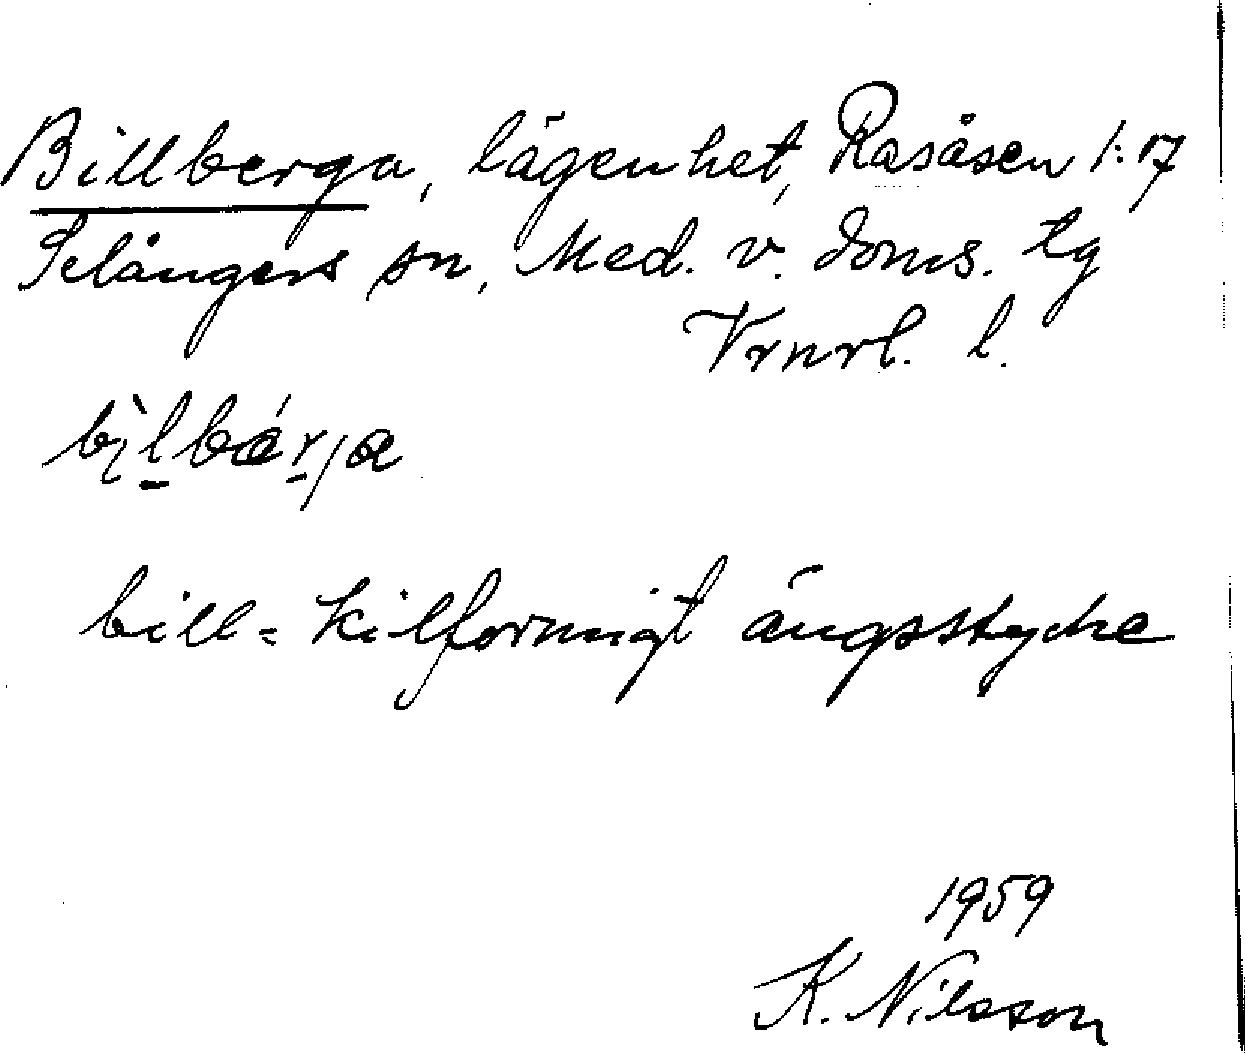 Billberga, lägenhet, Rasåsen 1:17
Selångers sn, Med. v. doms. tg
Vrnrl. l.
bìlbárja
bill = kilformigt ängsstycke
1959
K. Nilsson